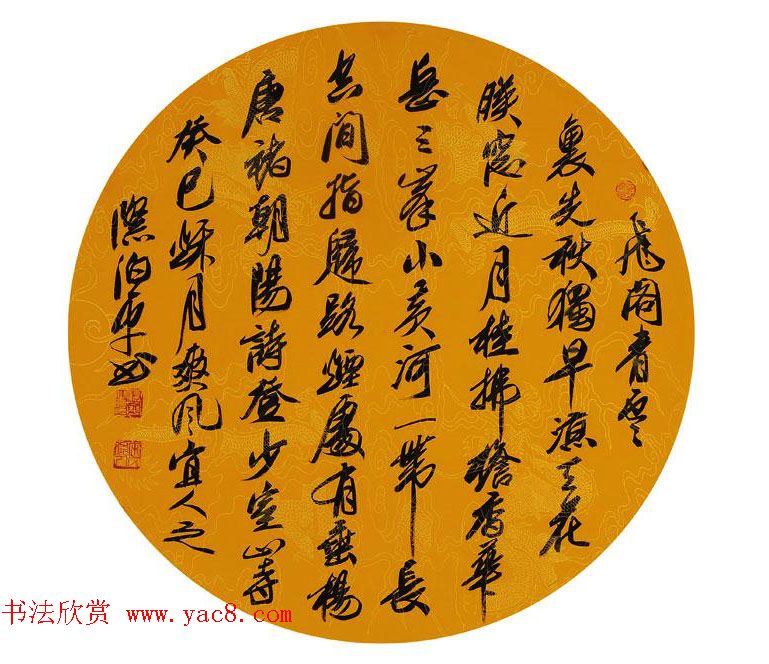 飛閣青霞
裏先秋獨早涼天花
映窓近月桂拂簷香華
岳三峯小黃河一帶長
空間指歸路煙處有垂楊
唐褚朝陽詩登少室山寺
癸巳秌月爽風宜人之
際泊
书法欣赏 www.yac8.com